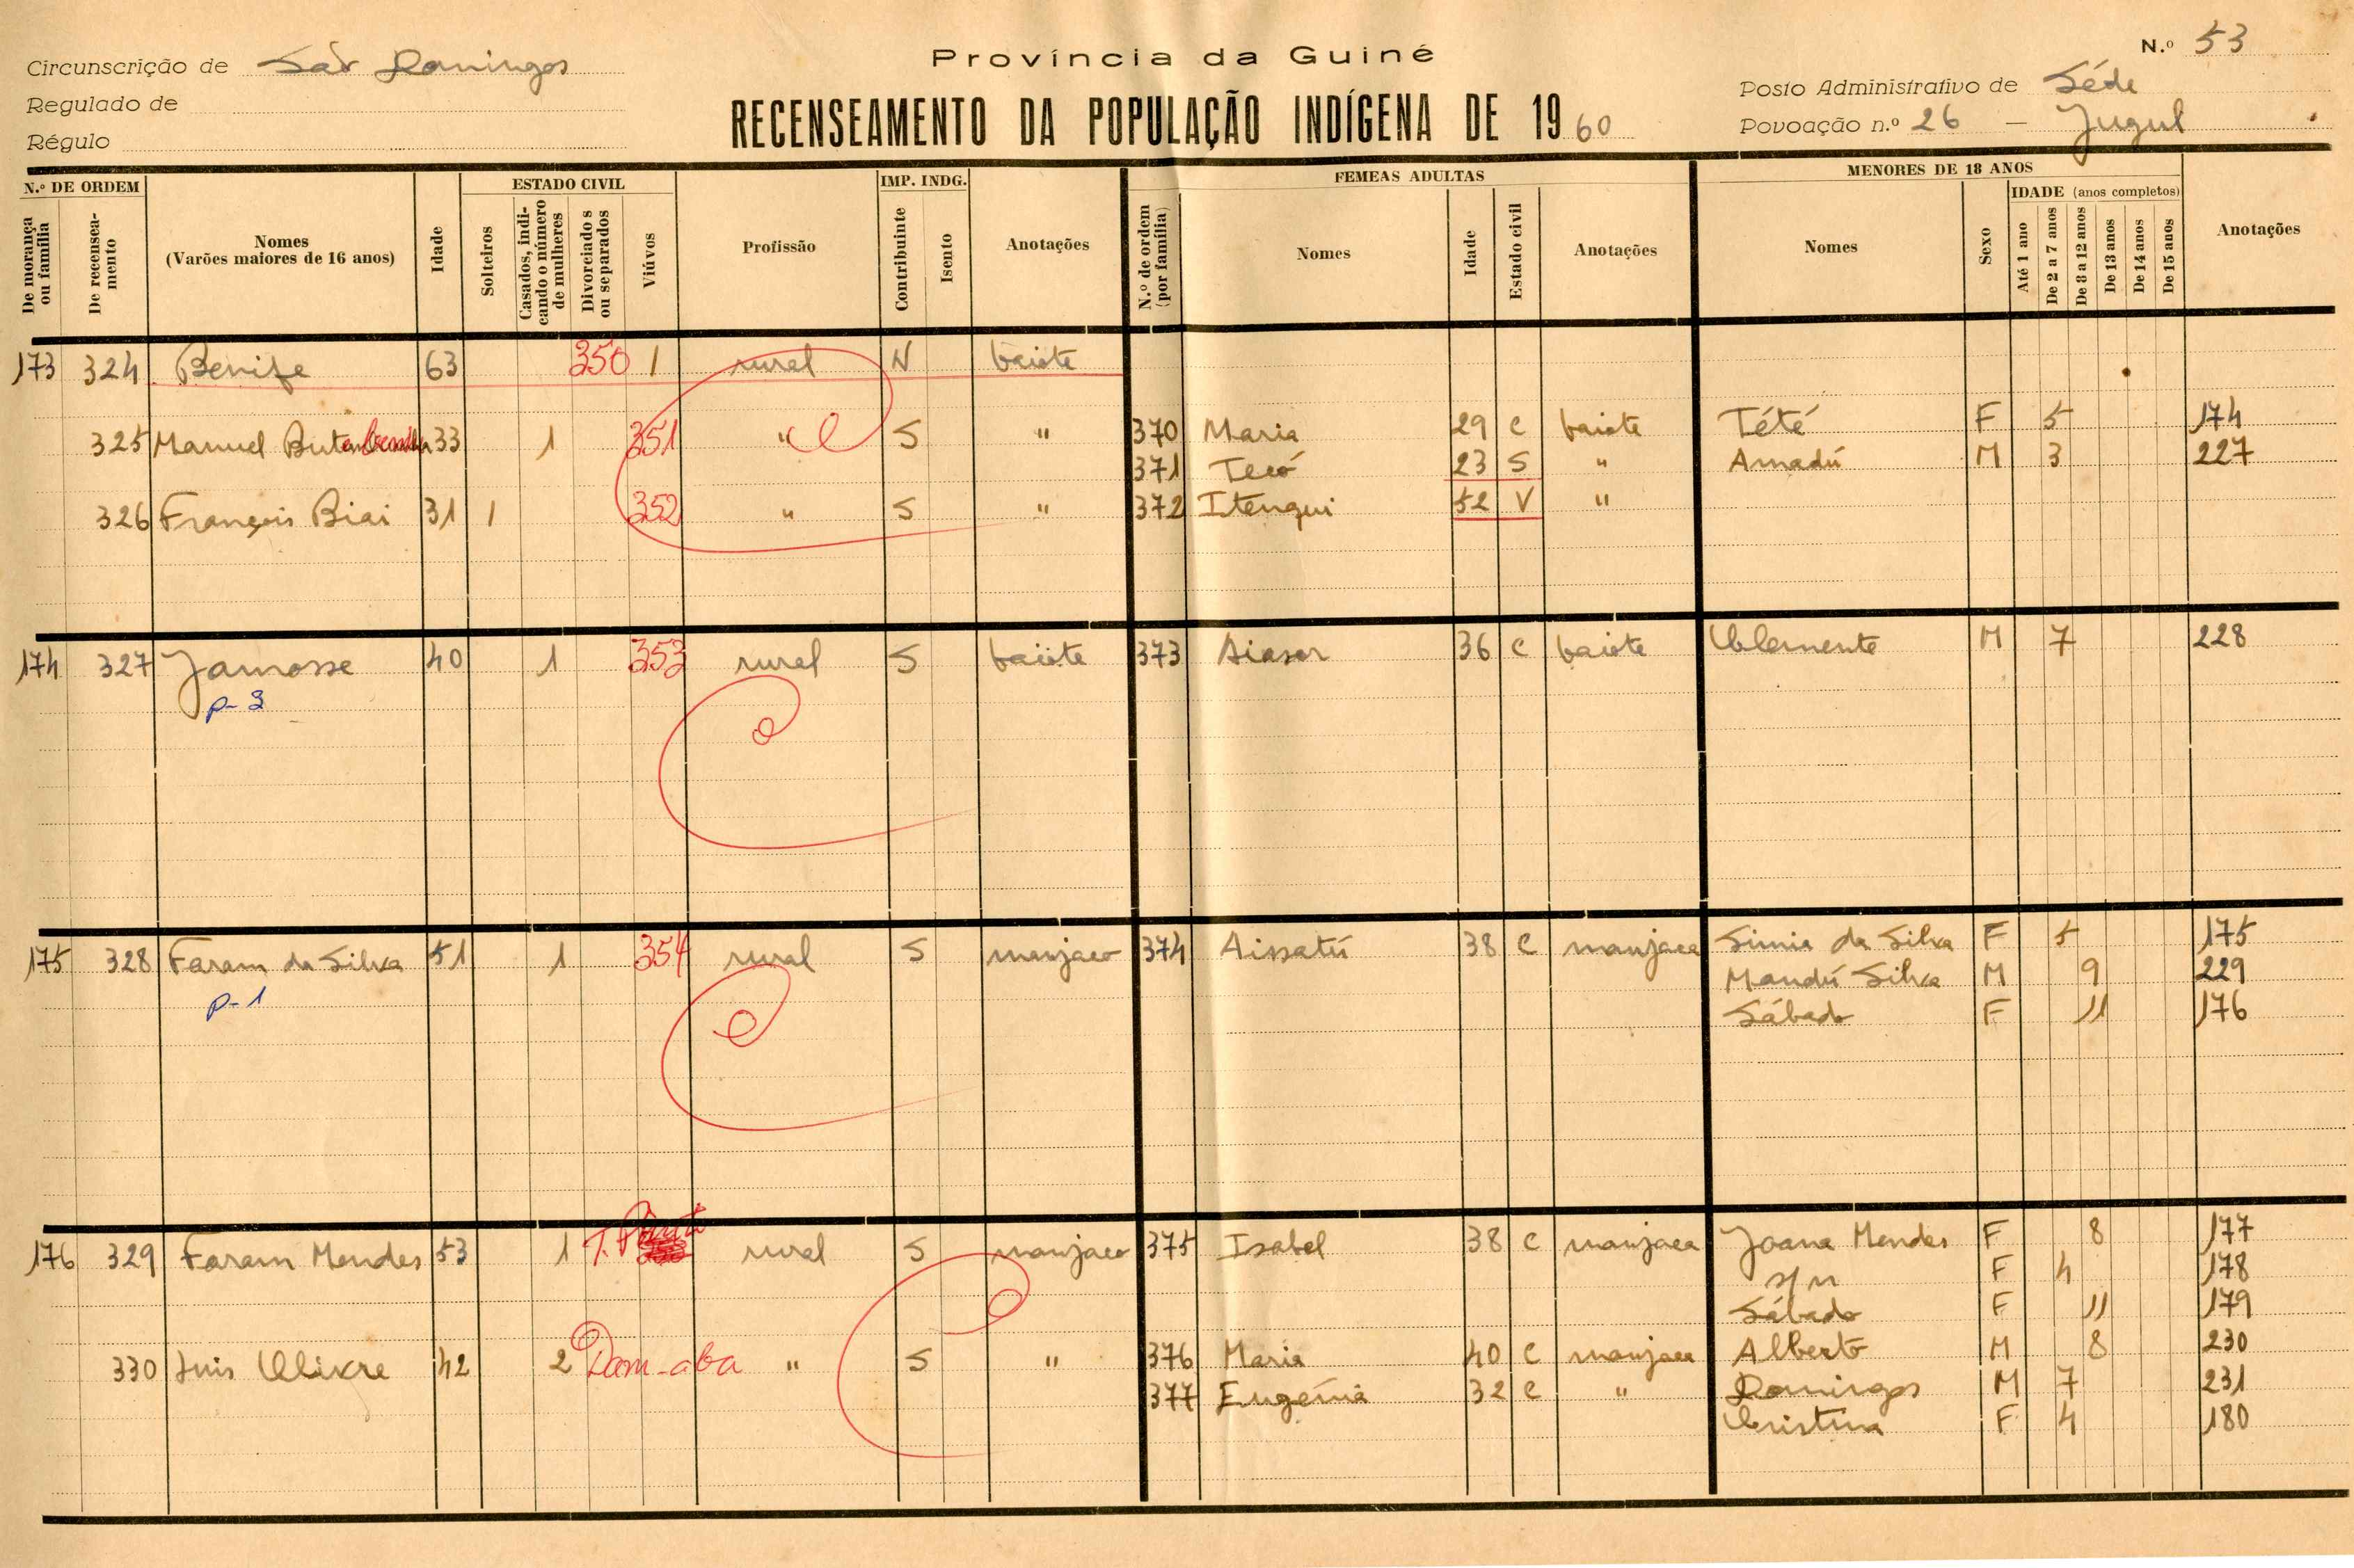 Província da Guiné
N.º 53
Circunscrição de São Domingos
Regulado de
Régulo
RECENSEAMENTO DA POPULAÇÃO INDÍGENA DE 1960
Posto Administrativo de Séde
Povoação n.º 26 — Jugul
N.º DE ORDEM
De morança ou família
De recenseamento
Nomes
(Varões maiores de 16 anos)
Idade
ESTADO CIVIL
Solteiros
Casados, indicando o número de mulheres
Divorciados ou separados
Viúvos
Profissão
IMP. INDG.
Contribuinte
Isento
Anotações
FEMEAS ADULTAS
N.º de ordem (por família)
Nomes
Idade
Estado civil
Anotações
MENORES DE 18 ANOS
Nomes
Sexo
IDADE (anos completos)
Até 1 ano
De 2 a 7 anos
De 8 a 12 anos
De 13 anos
De 14 anos
De 15 anos
Anotações
173 324 Benife 63 350 1 rural N baiote
325 Manuel 33 1 351 " S " 370 Maria 29 C baiote Tété F 5 174
371 Tecó 23 S " Amadú M 3 227
326 François Biai 31 1 352 " S " 372 Itengui 52 V "
174 327 Jamosse 40 1 353 rural S baiote 373 Siasor 36 C baiote Clemente M 7 228
p-3
175 328 Faram da Silva 51 1 354 rural S manjaco 374 Aissatú 38 C manjaca Simia da Silva F 5 175
Mandú Silva M 9 229
p-1
Sábado F 11 176
176 329 Faram Mendes 53 1 rural S manjaco 375 Isabel 38 C manjaca Joana Mendes F 8 177
s/n F 4 178
Sábado F 11 179
330 Luis 42 2 Dam-aba " S " 376 Maria 40 C manjaca Alberto M 8 230
377 Eugénia 32 C " Domingos M 7 231
Cristina F 4 180